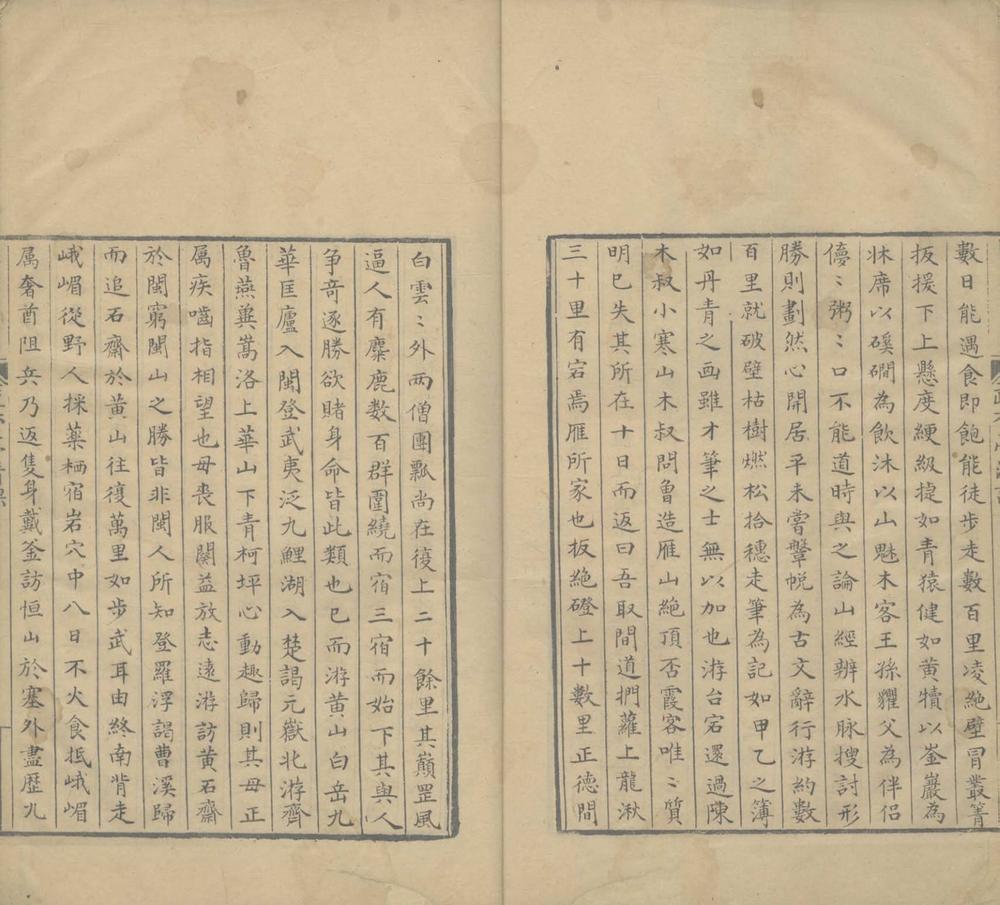 數日能遇食即飽能徒步走數百里凌絕壁冒叢箐
扳援下上懸度綆級捷如青猿健如黃犢以崟巖為
牀席以磎磵為飲沐以山魅木客王孫貜父為伴侶
儚〻粥〻口不能道時與之論山經辨水脉搜討形
勝則劃然心開居平未嘗鞶帨為古文辭行游約數
百里就破壁枯樹燃松拾穗走筆為記如甲乙之簿
如丹青之画雖才筆之士無以加也游台宕還過陳
木叔小寒山木叔問魯造雁山絶頂否霞客唯〻質
明已失其所在十日而返曰吾取間道捫蘿上龍湫
三十里有宕焉雁所家也扳絶磴上十數里正德間
白雲〻外两僧團瓢尚在復上二十餘里其巔罡風
逼人有麋鹿數百群圍繞而宿三宿而始下其與人
争奇逐勝欲賭身命皆此類也已而游黄山白岳九
華匡廬入閩登武夷泛九鯉湖入楚謁元嶽北游齊
魯燕冀嵩洛上華山下青柯坪心動趣歸則其母正
属疾嚙指相望也母喪服闋益放志遠游訪黄石齋
於閩窮閩山之勝皆非閩人所知登羅浮謁曹溪歸
而追石齋於黄山往復萬里如步武耳由終南背走
峨嵋從野人採藥栖宿岩穴中八日不火食抵峨嵋
属奢酋阻兵乃返隻身戴釜訪恒山於塞外盡歷九